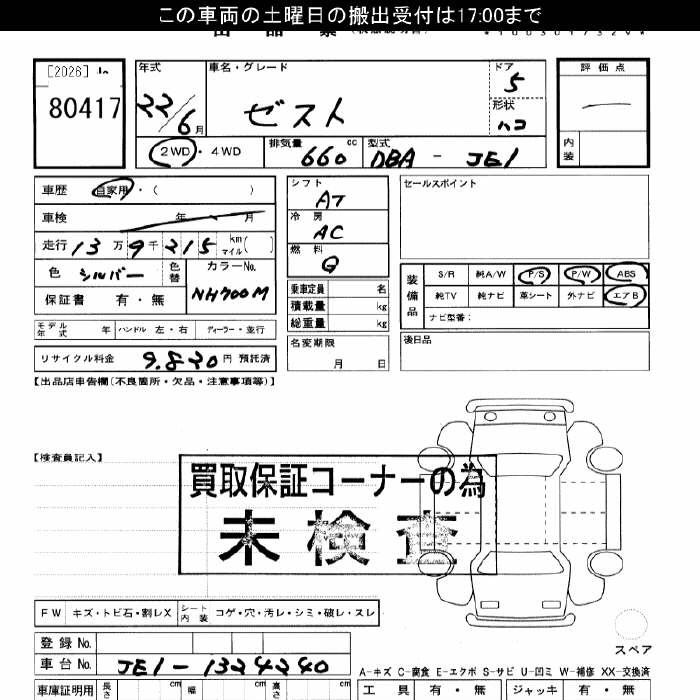 この車両の土曜日の搬出受付は17:00まで
[2026]
80417
年式
22/6月
車名・グレード
ゼスト
ドア
5
形状
ハコ
評価点
内装
2WD・4WD
排気量
660
cc
型式
DBA - JE1
車歴
自家用・(　)
車検
年　月
走行
13万9千215
km
マイル
(　)
色
シルバー
色替
カラーNo.
NH700M
保証書　有・無
モデル年式　年
ハンドル　左・右
ディーラー・並行
リサイクル料金
9.830円 預託済
シフト
AT
冷房
AC
燃料
G
乗車定員　名
積載量　kg
総重量　kg
名変期限
月　日
セールスポイント
装備品
S/R　純A/W　P/S　P/W　ABS
純TV　純ナビ　革シート　外ナビ　エアB
ナビ型番：
後日品
【出品店申告欄(不良箇所・欠品・注意事項等)】
【検査員記入】
買取保証コーナーの為
未検査
FW　キズ・トビ石・割レX
シート内装　コゲ・穴・汚レ・シミ・破レ・スレ
スペア
登録 No.
車台 No.
JE1-1324240
A-キズ C-腐食 E-エクボ S-サビ U-凹ミ W-補修 XX-交換済
車庫証明用
長さ　cm
幅　cm
高さ　cm
工具　有・無
ジャッキ　有・無